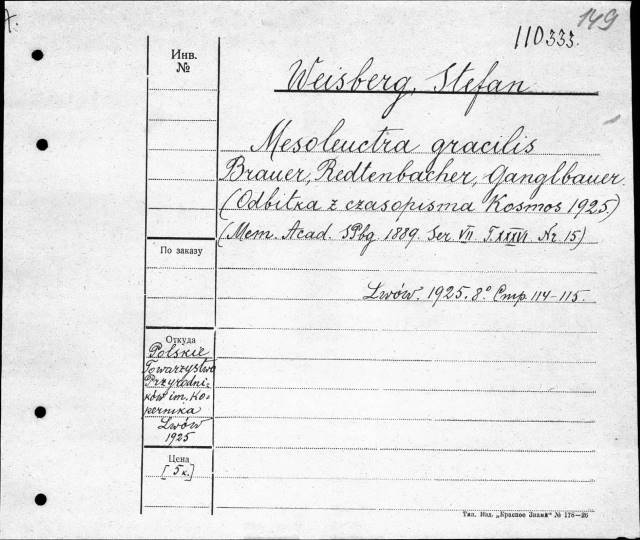 149
110333.
Инв.
№
Weisberg, Stefan
Mesoleuctra gracilis
Brauer, Redtenbacher, Ganglbauer.
(Odbitka z czasopisma Kosmos 1925.)
(Mem. Acad. SPbg. 1889. Ser VII T.XXXVI Nr 15)
По заказу
Lwów. 1925. 8.° Стр. 114–115.
Откуда
Polskie
Towarzystwo
Przyrodni-
ków im. Ko-
pernika
Lwów
1925
Цена
[5 к.]
Тип. Изд. „Красное Знамя“ № 178—26